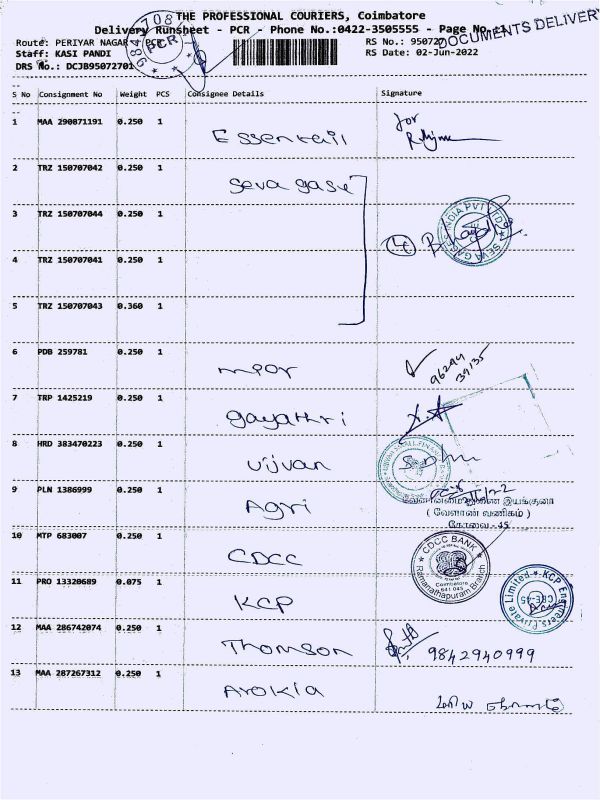 THE PROFESSIONAL COURIERS, Coimbatore
Delivery Runsheet - PCR - Phone No.:0422-3505555 - Page No.
DOCUMENTS DELIVERY
Route: PERIYAR NAGAR - PCR
RS No.: 950727
Staff: KASI PANDI
RS Date: 02-Jun-2022
DRS No.: DCJB95072701
PCR
S No Consignment No Weight PCS Consignee Details Signature
1 MAA 290871191 0.250 1 Essenkail for
2 TRZ 150707042 0.250 1 Seva gase
3 TRZ 150707044 0.250 1
SEVA GASES INDIA PVT LTD
4 TRZ 150707041 0.250 1
5 TRZ 150707043 0.360 1
6 PDB 259781 0.250 1 mpor 96294 39135
7 TRP 1425219 0.250 1 Gayathri
8 HRD 383470223 0.250 1 Ujjvan
9 PLN 1386999 0.250 1 Agri
இயக்குனர்
( வேளாண் வணிகம் )
கோவை - 45
10 MTP 683007 0.250 1 CDCC
CDCC BANK
Coimbatore
641 045
Ramanathapuram Branch
11 PRO 13320689 0.075 1 KCP
KCP Engineers Private Limited
CBE-45
12 MAA 286742074 0.250 1 Thomson 9842940999
13 MAA 287267312 0.250 1 Arokia